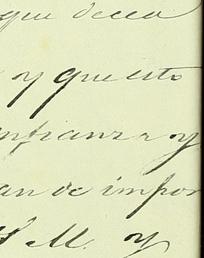 que decea
y que esto
nfianza y
an de impor
S. M. y